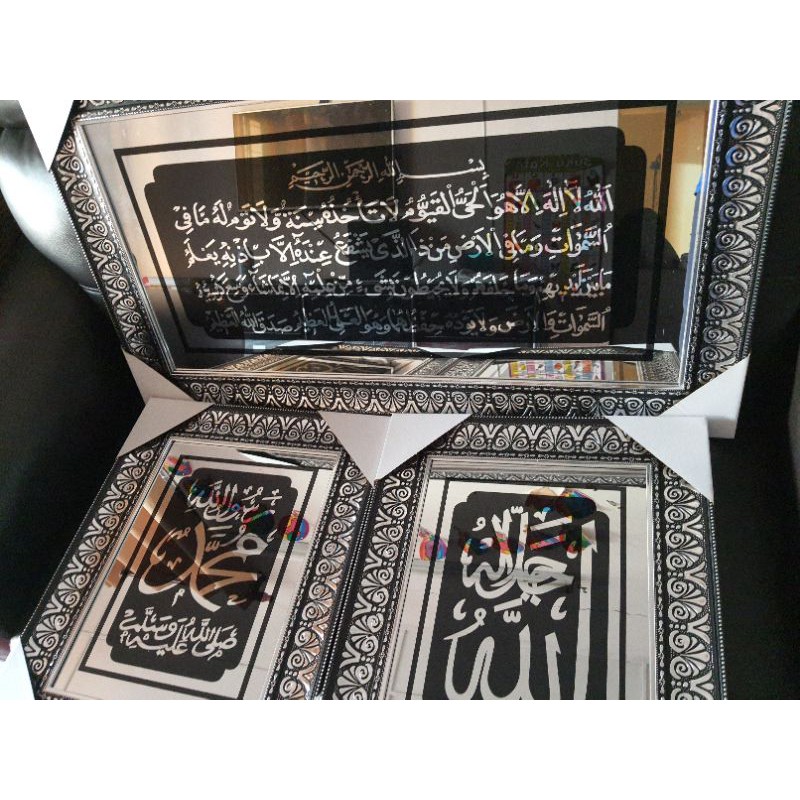 بِسْمِ اللهِ الرَّحْمٰنِ الرَّحِيْمِ
اَللهُ لَا اِلٰهَ اِلَّا هُوَ اَلْحَىُّ الْقَيُّوْمُ لَا تَأْخُذُهُ سِنَةٌ وَلَا نَوْمٌ لَهُ مَا فِى
السَّمٰوَاتِ وَمَا فِى الْاَرْضِ مَنْ ذَا الَّذِى يَشْفَعُ عِنْدَهُ اِلَّا بِاِذْنِهِ يَعْلَمُ
مَا بَيْنَ اَيْدِيْهِمْ وَمَا خَلْفَهُمْ وَلَا يُحِيْطُوْنَ بِشَىْءٍ مِنْ عِلْمِهِ اِلَّا بِمَا شَاءَ وَسِعَ كُرْسِيُّهُ
السَّمٰوَاتِ وَالْاَرْضَ وَلَا يَؤُدُهُ حِفْظُهُمَا وَهُوَ الْعَلِىُّ الْعَظِيْمُ صَدَقَ اللهُ الْعَظِيْمُ
مُحَمَّدٌ
صَلَّى اللهُ عَلَيْهِ وَسَلَّمَ
جَلَّ جَلَالُهُ
اَللّٰهُ